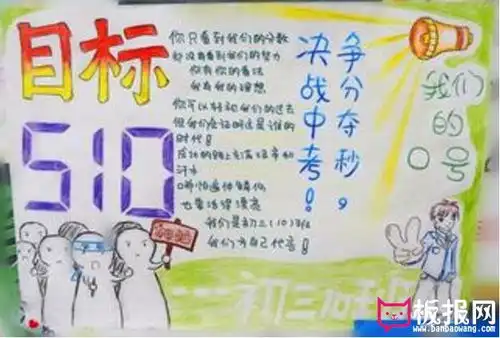 目标
510
你只看到我们的分数
却没看到我们的努力
你有你的看法
我有我的理想
你可以轻视我们的过去
但我们会证明这是谁的
时代!
成功的路上充满泪水和
汗水
哪怕遍体鳞伤
也要活得漂亮
我们是初三(10)班
我们为自己代言!
争分夺秒,
决战中考!
我们
的
0号
加油
初三10班
板报网
www.banbaowang.com